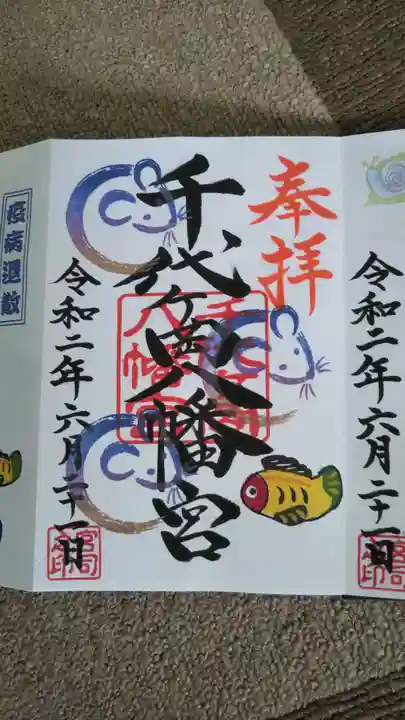 令和二年六月二十一日
奉拝
千代ヶ岡八幡宮
令和二年六月二十一日
疫病退散